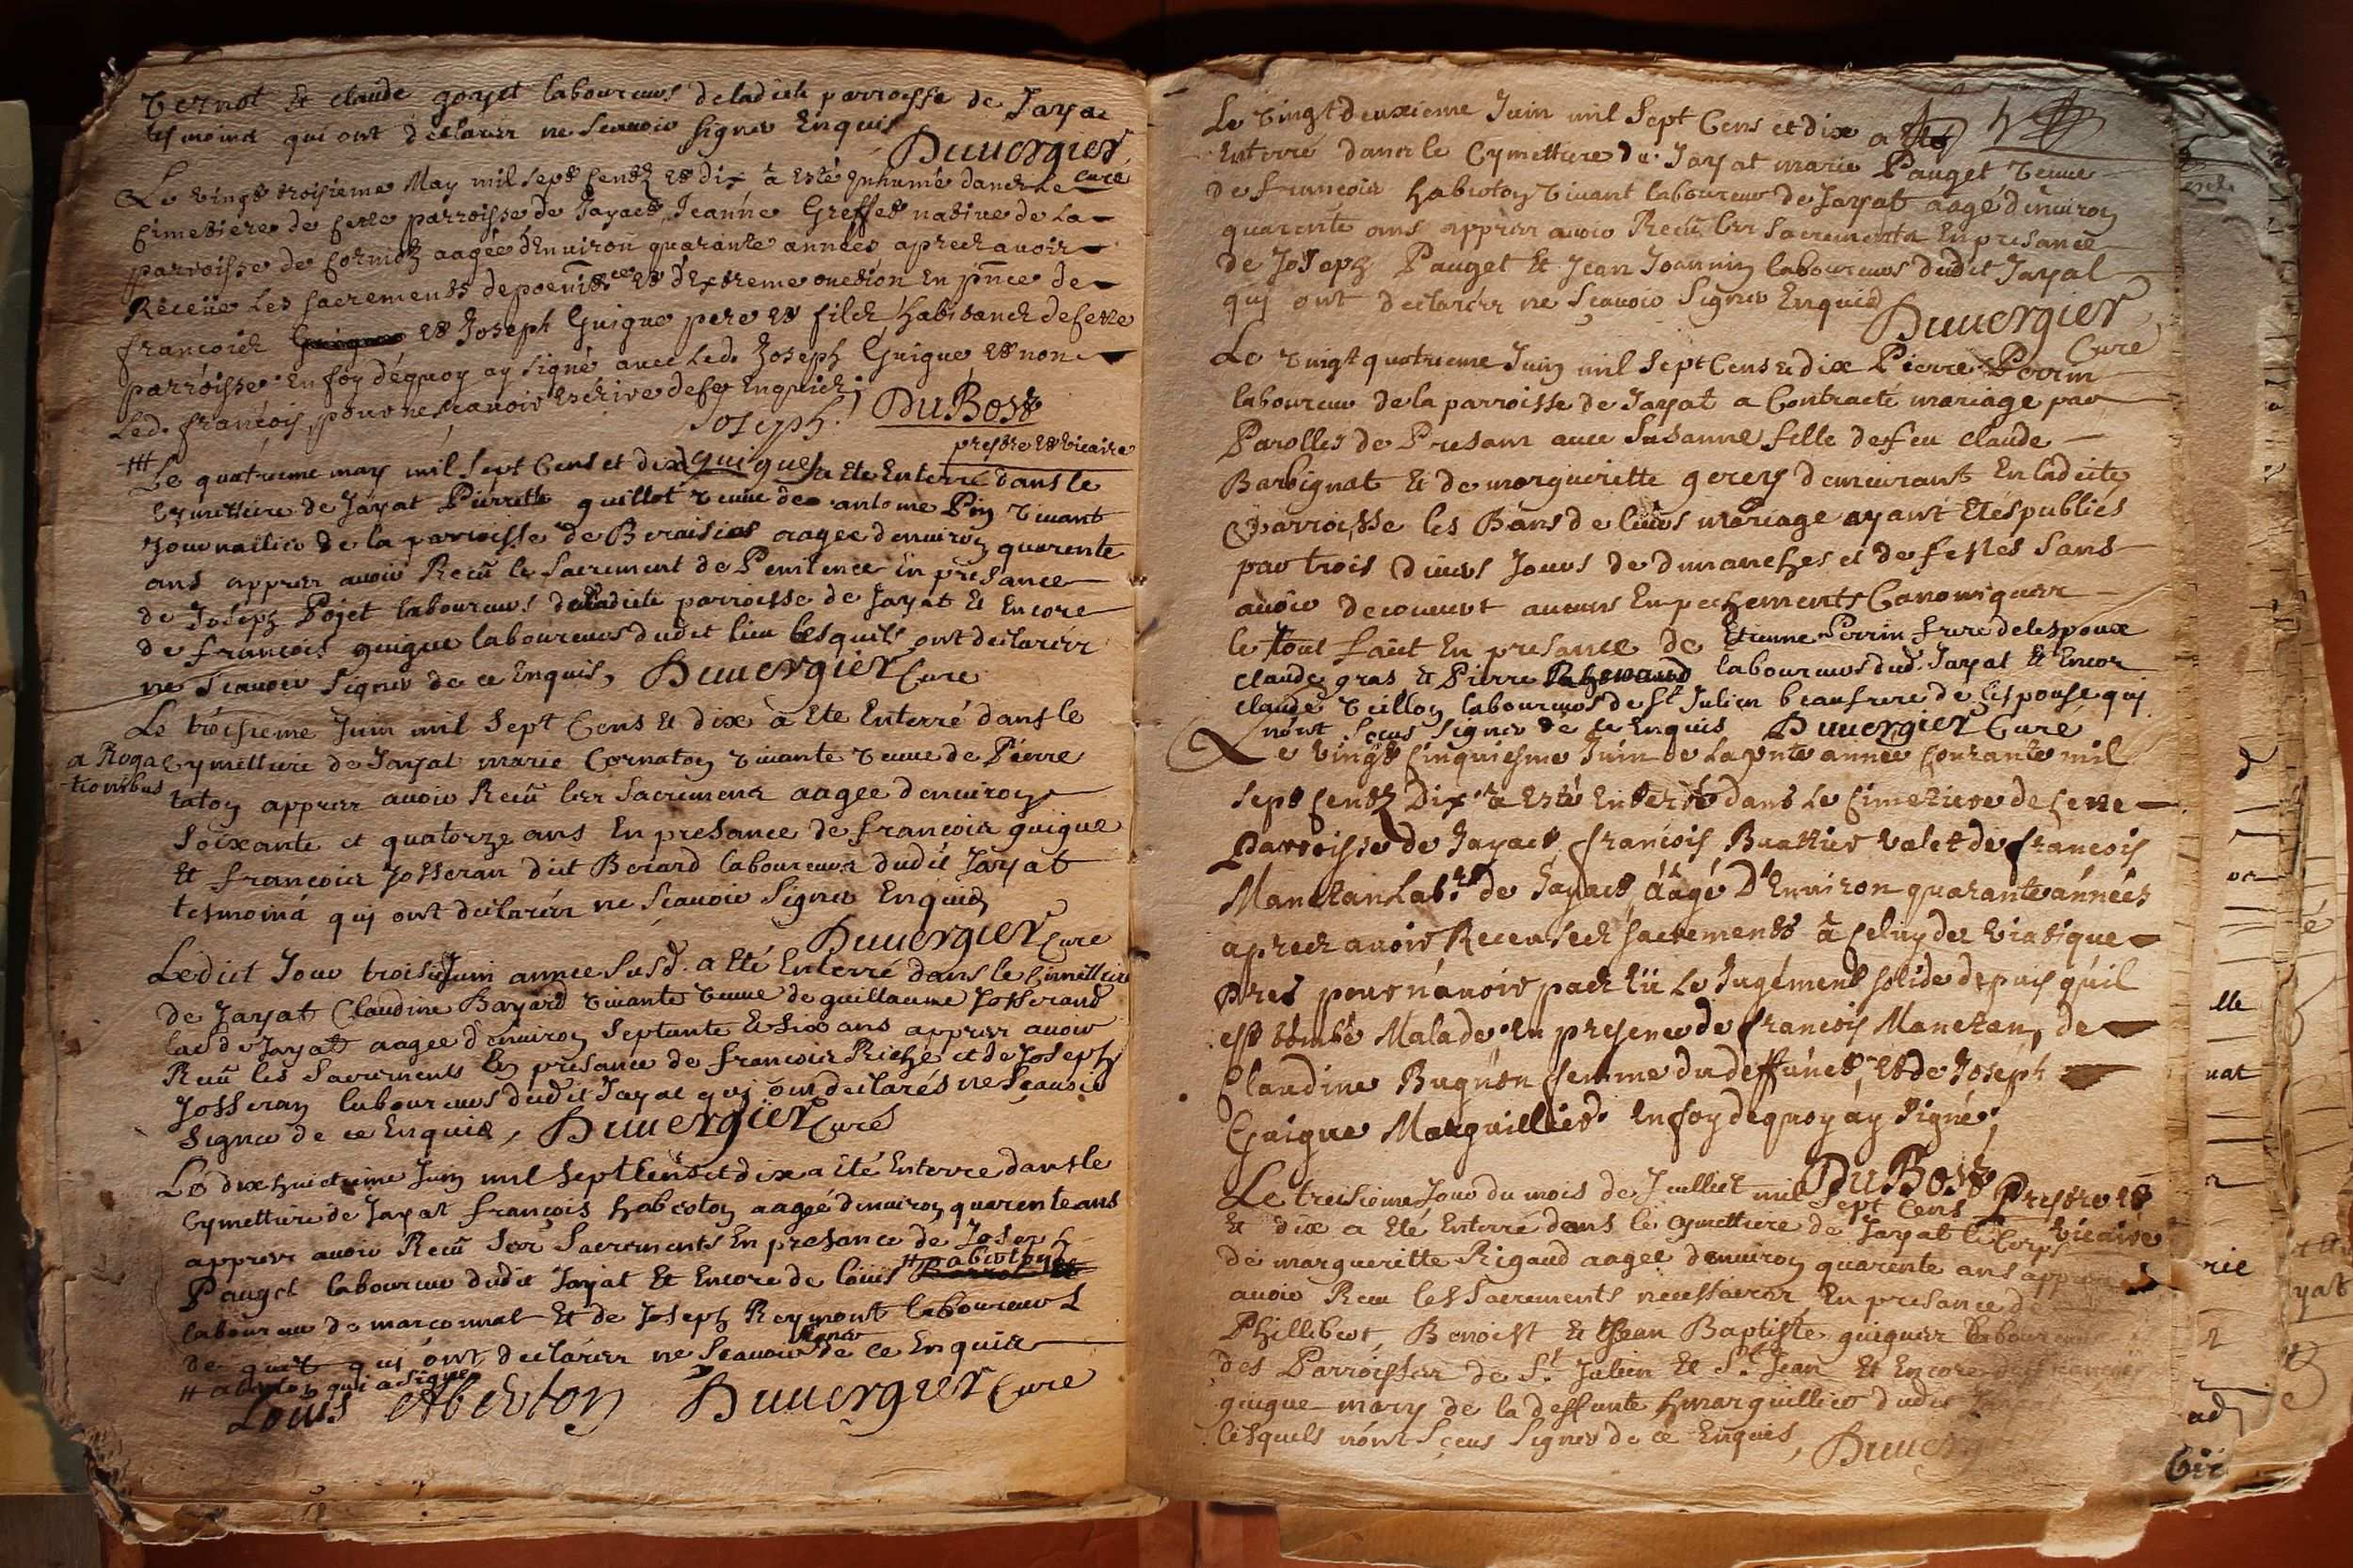 vernot Et claude goyet laboureurs deladicte parroisse de Jaya
tesmoins qui ont declarer ne Scauoir signer Enquis
Duuergier
Cure
Le vingt troisieme May mil sept centz et dix à esté Inhumé dans Le
Cimetiere de cette parroisse de Jayact, Jeanne Greffet natiue de La
parroisse de Cormoz aagée dEnuiron quarante années apres auoir
Réceüe Les sacrements depoenitce et d'Extreme onction En pnce de
francois et Joseph Guigue pere et fils habitans de cette
parroisse En foy déquoy ay signé auec Led. Joseph Guigue et non
Led. francois, pour ne scauoir Escrire dece Enquis.
Joseph DuBost
guigue prestre et vicaire
Le quatrieme may mil Sept Cens et dix a Ete Enterré dans le
Cymettiere de Jayat Pierrette guillot veuue de antoine Pin viuant
Journallier de la parroisse de Beraisias aagee denuiron quarente
ans apprer auoir Receü le Sacrement de Penitence En presance
de Joseph Pojet laboureurs deladicte parroisse de Jayat Et Encore
de francois guigue laboureurs dudit lieu lesquels ont declarer
ne Scauoir Signer de ce Enquis, Duuergier Cure
Le troisieme Juin mil Sept Cens Et dix à Ete Enterré dans le
a Roga Cymettiere de Jayat marie Cornaton viuante veuue de Pierre
tionibus taton apprer auoir Receü les Sacremens aagee denuiron
Soixante et quatorze ans En presance de francois guigue
Et francois Josseran dict Berard laboureurs dudit Jayat
tesmoins qui ont declarer ne Scauoir Signer Enquis
Duuergier Cure
Ledict Jour trois Juin annee Susd. a Eté Enterré dans le Cimettiere
de Jayat Claudine Bayard viuante veuue de guillaume Josserand
de Jayat aagee denuiron Septante Et Six ans apprer auoir
Receü les Sacrements En presance de francois Riche et de Joseph
Josseran laboureurs dudit Jayat qui ont declarés ne Scauoir
Signer de ce Enquis, Duuergier Curé
Le dix huictieme Juin mil Sept Cens et dix a Eté Enterré dans le
Cymettiere de Jayat françois habeoton aagé denuiron quarente ans
apprer auoir Receü Ses Sacrements En presance de Joseph
Pauget laboureur dudit Jayat Et Encore de louis
laboureur de marconnat Et de Joseph Reymont laboureurs
qui ont declarer ne Scauoir Signer de ce Enquis
qui a Signe
Louis Duuergier Cure
Le vingt deuxieme Juin mil Sept Cens et dix a
Enterré dans le Cymettiere de Jayat marie Pauget veuue
de francois habeoton viuant laboureur de Jayat aagé denuiron
quarente ans apprer auoir Receü les Sacrements En presance
de Joseph Pauget Et Jean Joannin laboureurs dudit Jayat
qui ont declarér ne Sçauoir Signer Enquis
Duuergier
Cure
Le vingt quatrieme Juin mil Sept Cens et dix Pierre Perrin
laboureur de la parroisse de Jayat a Contracté mariage par
Parolles de Presant auec Susanne fille de feu claude
Barbignat Et de margueritte gerey demeurant En ladicte
parroisse les Bans de leurs mariage ayant Etés publiés
par trois diuers Jours de dimanches et de festes Sans
auoir decouuert aucuns Empechements Canoniques
le tout faict En presance de Etienne Perrin frere de lespoux
claude gras Et Pierre laboureurs dud. Jayat Et Encor
claude veillon laboureurs de St Julien beaufrere de lespouse qui
nónt Sceus Signer de ce Enquis Duuergier Curé
Le vingt cinquiesme Juin de La pnte année Courante mil
Sept centz Dix à Esté Enterré dans Le Cimetiere de cette
Parroisse de Jayact, francois Buattier valet de francois
Manezan Labr. de Jayact, áágé D'Enuiron quarante années
apres auoir Receu Ses sacrements à Celuy du viatique
pres pour n'auoir pas eü Le Jugément solide depuis qu'il
est tombé Malade En presence de francois Manezan, de
Claudine Buguen femme du deffunct, et de Joseph
Guigue Marguillier. En foy déquoy ay signé,
DuBost Prestre et
vicaire
Le treisieme Jour du mois de Juilliet mil Sept Cens
Et dix a Eté Enterré dans le Cymettiere de Jayat le Corps
de marguerite Rigaud aagee denuiron quarente ans apprer
auoir Receu les Sacrements necessaires En presance de
Phillibert Benoist Et Jean Baptiste guigues laboureurs
des Parroisses de St. Julien Et St. Jean Et Encore de francois
guigue mary de la deffunte marguillier dudit
lesquels nónt Sceus Signer de ce Enquis, Duuerg